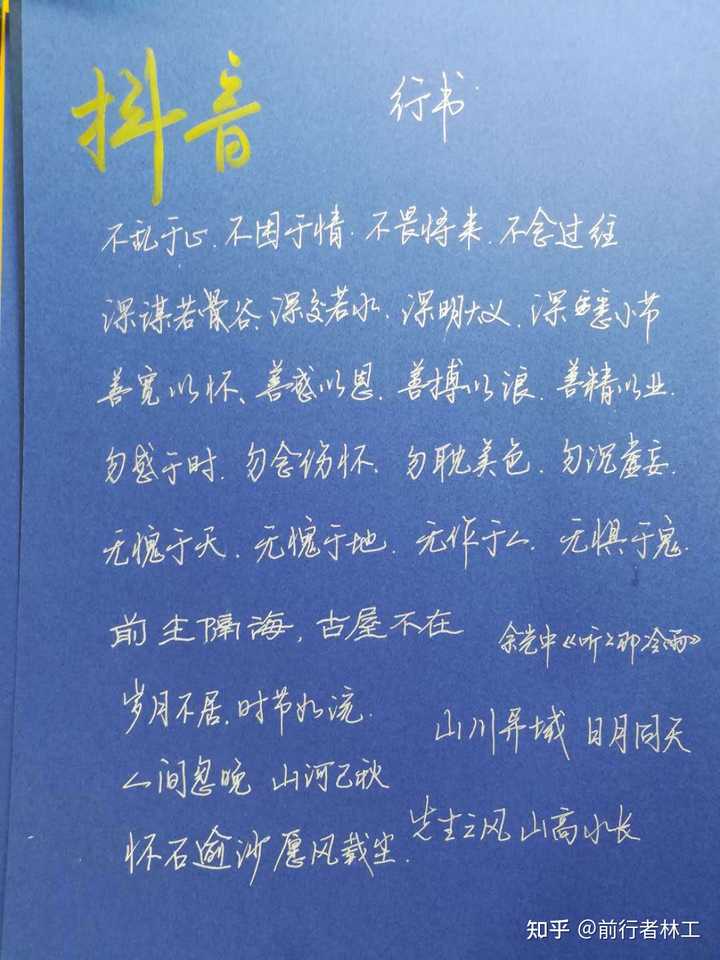 抖音
行书
不乱于心.不困于情.不畏将来.不念过往
深谋若骨谷、深交若水.深明大义.深悉小节
善宽以怀、善感以恩.善搏以浪.善精以业.
勿感于时.勿念伤怀.勿耽美色.勿沉虚妄.
无愧于天.无愧于地.无怍于人.无惧于鬼.
前尘隔海,古屋不在
余光中《听听那冷雨》
岁月不居.时节如流.
山川异域 日月同天
人间忽晚 山河已秋
先生之风 山高水长
怀石逾沙 愿风载尘.
知乎 @前行者林工